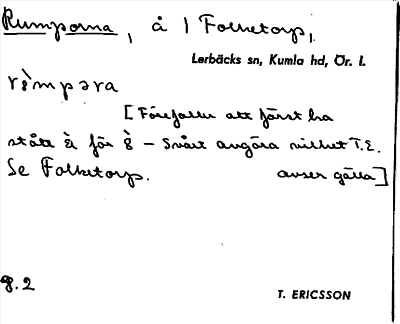 Rumporna, å 1 Folketorp,
Lerbäcks sn, Kumla hd, Ör. l.
rèmpəra
[Förefaller att först ha
stått è̀ för è – Svårt avgöra vilket T.E.
Se Folketorp. avser gälla]
8.2
T. ERICSSON